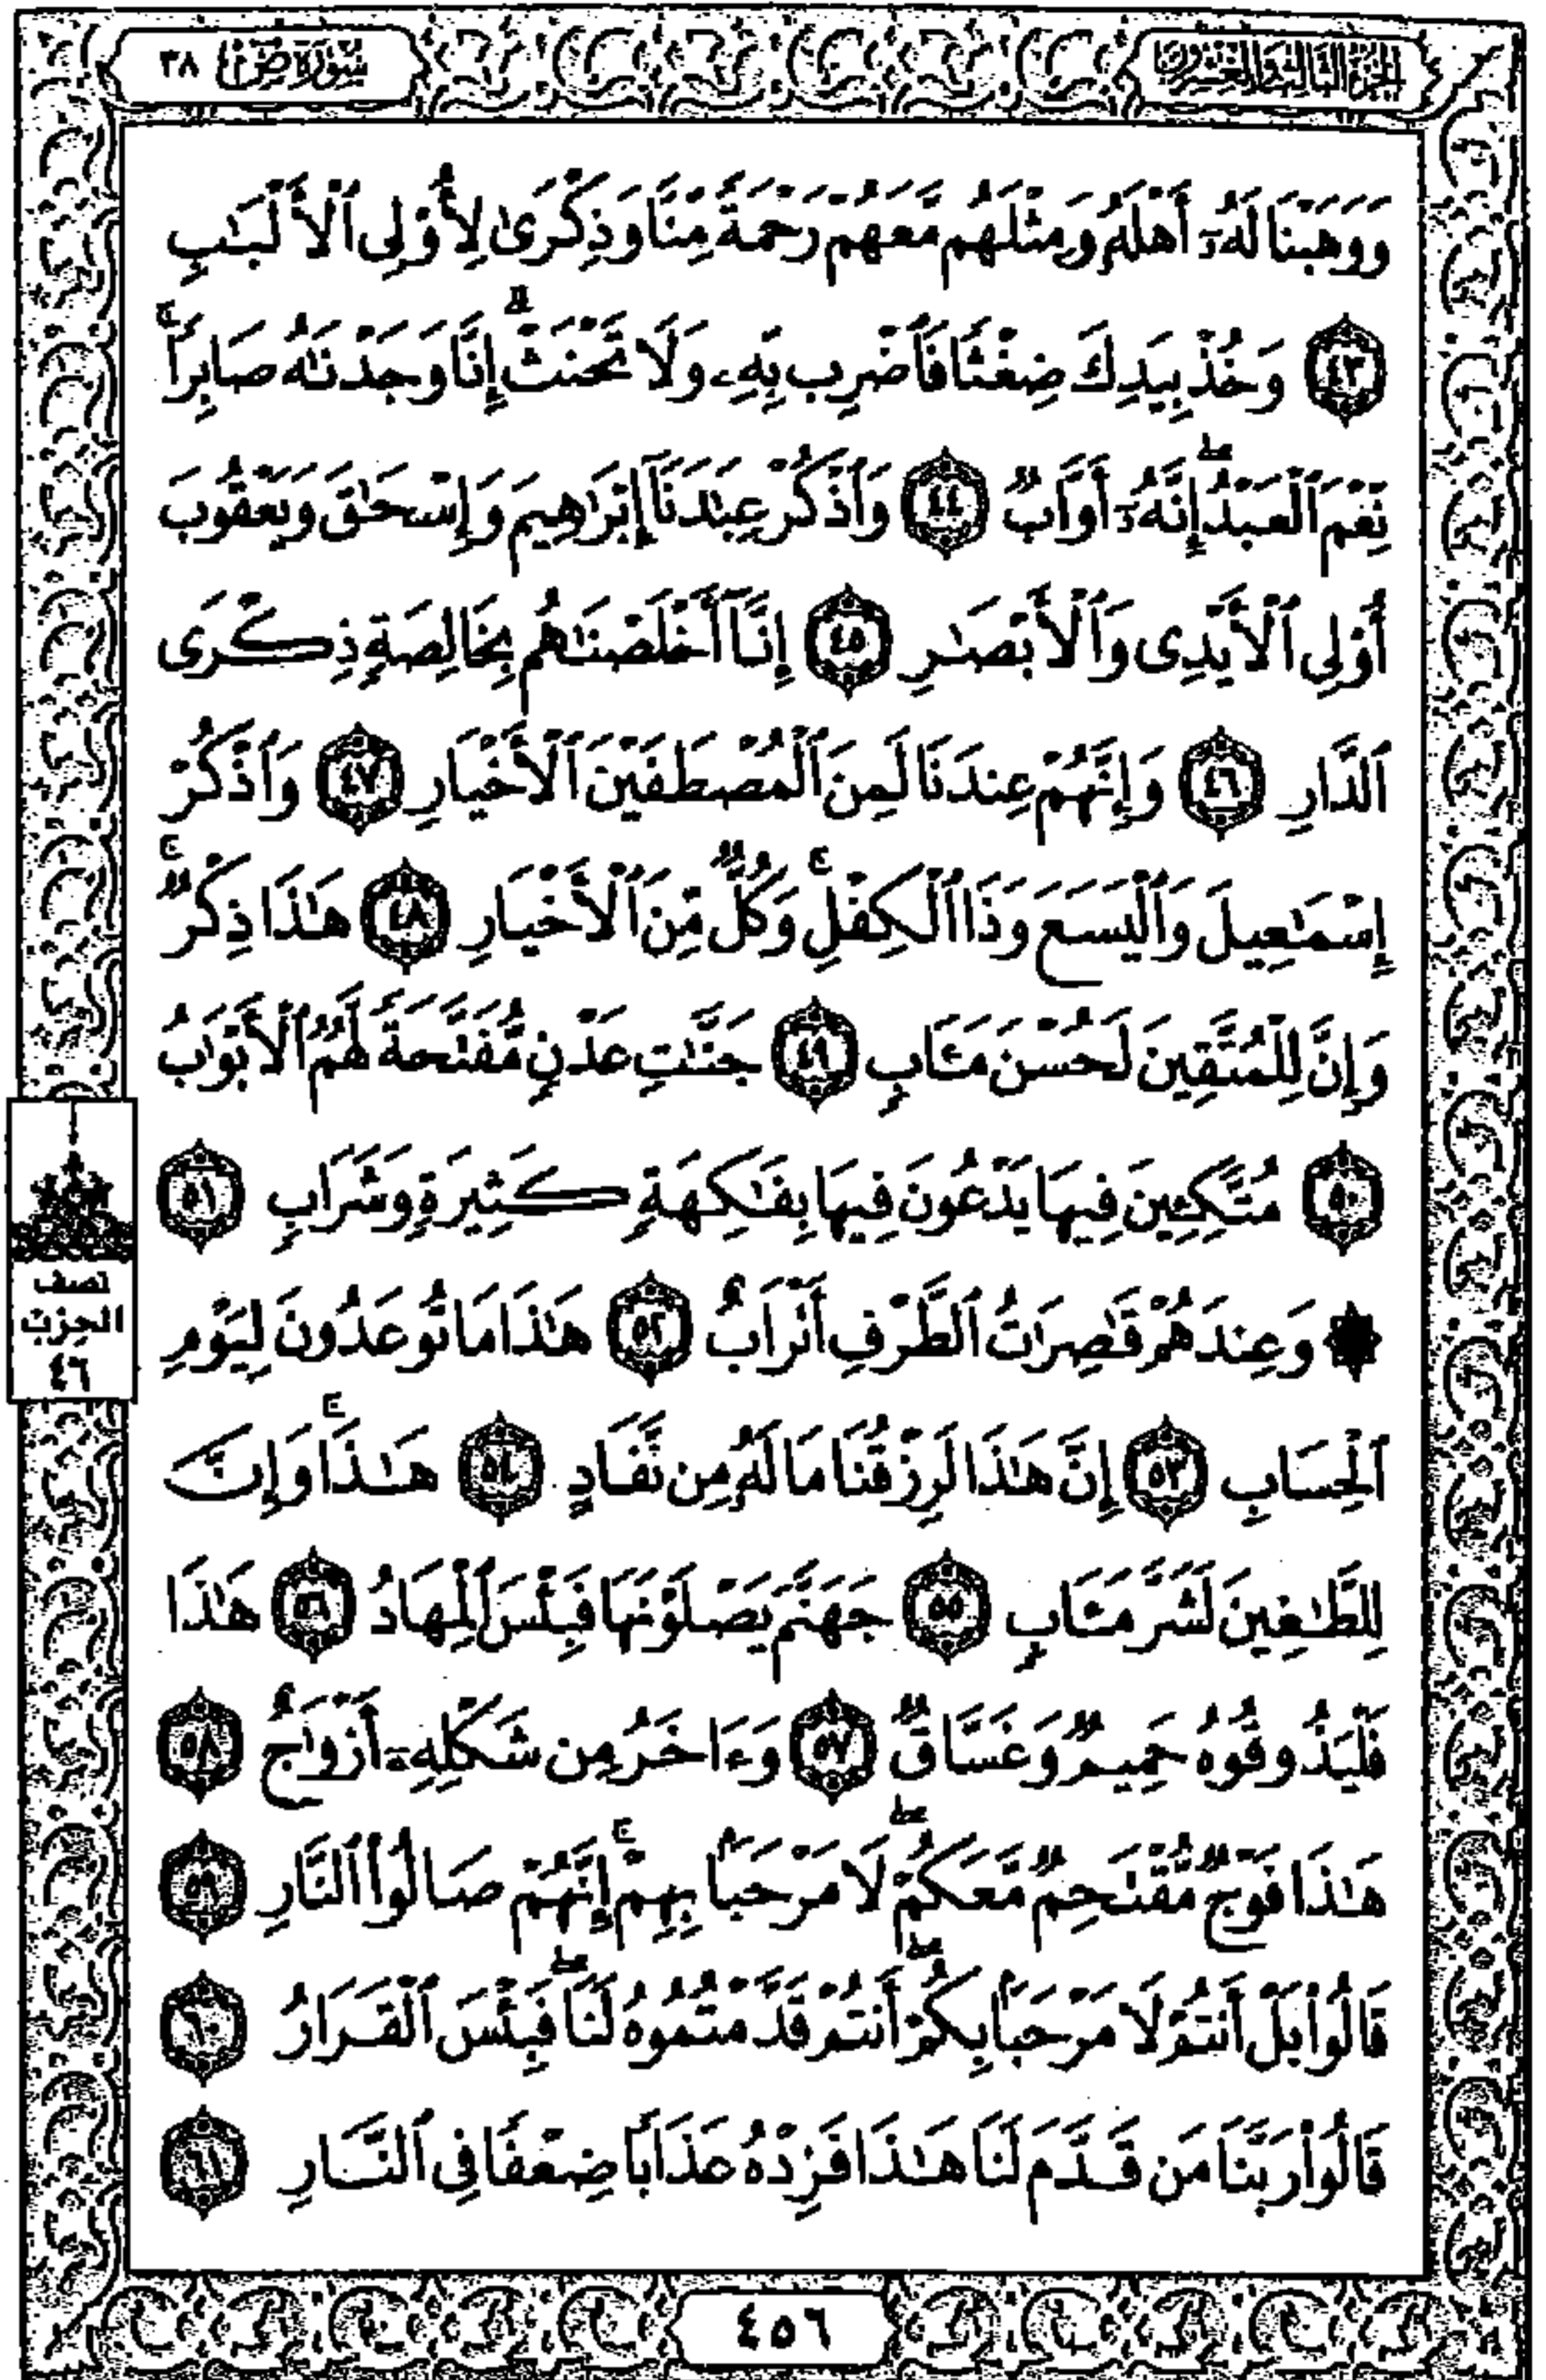 الجزء الثالث والعشرون
سورة ص ٣٨
وَوَهَبْنَا لَهُۥٓ أَهْلَهُۥ وَمِثْلَهُم مَّعَهُمْ رَحْمَةً مِّنَّا وَذِكْرَىٰ لِأُو۟لِى ٱلْأَلْبَٰبِ
٤٣ وَخُذْ بِيَدِكَ ضِغْثًا فَٱضْرِب بِّهِۦ وَلَا تَحْنَثْ ۗ إِنَّا وَجَدْنَٰهُ صَابِرًا ۚ
نِّعْمَ ٱلْعَبْدُ ۖ إِنَّهُۥٓ أَوَّابٌ ٤٤ وَٱذْكُرْ عِبَٰدَنَآ إِبْرَٰهِيمَ وَإِسْحَٰقَ وَيَعْقُوبَ
أُو۟لِى ٱلْأَيْدِى وَٱلْأَبْصَٰرِ ٤٥ إِنَّآ أَخْلَصْنَٰهُم بِخَالِصَةٍ ذِكْرَى
ٱلدَّارِ ٤٦ وَإِنَّهُمْ عِندَنَا لَمِنَ ٱلْمُصْطَفَيْنَ ٱلْأَخْيَارِ ٤٧ وَٱذْكُرْ
إِسْمَٰعِيلَ وَٱلْيَسَعَ وَذَا ٱلْكِفْلِ ۚ وَكُلٌّ مِّنَ ٱلْأَخْيَارِ ٤٨ هَٰذَا ذِكْرٌ ۚ
وَإِنَّ لِلْمُتَّقِينَ لَحُسْنَ مَـَٔابٍ ٤٩ جَنَّٰتِ عَدْنٍ مُّفَتَّحَةً لَّهُمُ ٱلْأَبْوَٰبُ
٥٠ مُتَّكِـِٔينَ فِيهَا يَدْعُونَ فِيهَا بِفَٰكِهَةٍ كَثِيرَةٍ وَشَرَابٍ ٥١
۞ وَعِندَهُمْ قَٰصِرَٰتُ ٱلطَّرْفِ أَتْرَابٌ ٥٢ هَٰذَا مَا تُوعَدُونَ لِيَوْمِ
ٱلْحِسَابِ ٥٣ إِنَّ هَٰذَا لَرِزْقُنَا مَا لَهُۥ مِن نَّفَادٍ ٥٤ هَٰذَا ۚ وَإِنَّ
لِلطَّٰغِينَ لَشَرَّ مَـَٔابٍ ٥٥ جَهَنَّمَ يَصْلَوْنَهَا فَبِئْسَ ٱلْمِهَادُ ٥٦ هَٰذَا
فَلْيَذُوقُوهُ حَمِيمٌ وَغَسَّاقٌ ٥٧ وَءَاخَرُ مِن شَكْلِهِۦٓ أَزْوَٰجٌ ٥٨
هَٰذَا فَوْجٌ مُّقْتَحِمٌ مَّعَكُمْ ۖ لَا مَرْحَبًۢا بِهِمْ ۚ إِنَّهُمْ صَالُوا۟ ٱلنَّارِ ٥٩
قَالُوا۟ بَلْ أَنتُمْ لَا مَرْحَبًۢا بِكُمْ ۖ أَنتُمْ قَدَّمْتُمُوهُ لَنَا ۖ فَبِئْسَ ٱلْقَرَارُ ٦٠
قَالُوا۟ رَبَّنَا مَن قَدَّمَ لَنَا هَٰذَا فَزِدْهُ عَذَابًا ضِعْفًا فِى ٱلنَّارِ ٦١
نصف
الحزب
٤٦
٤٥٦